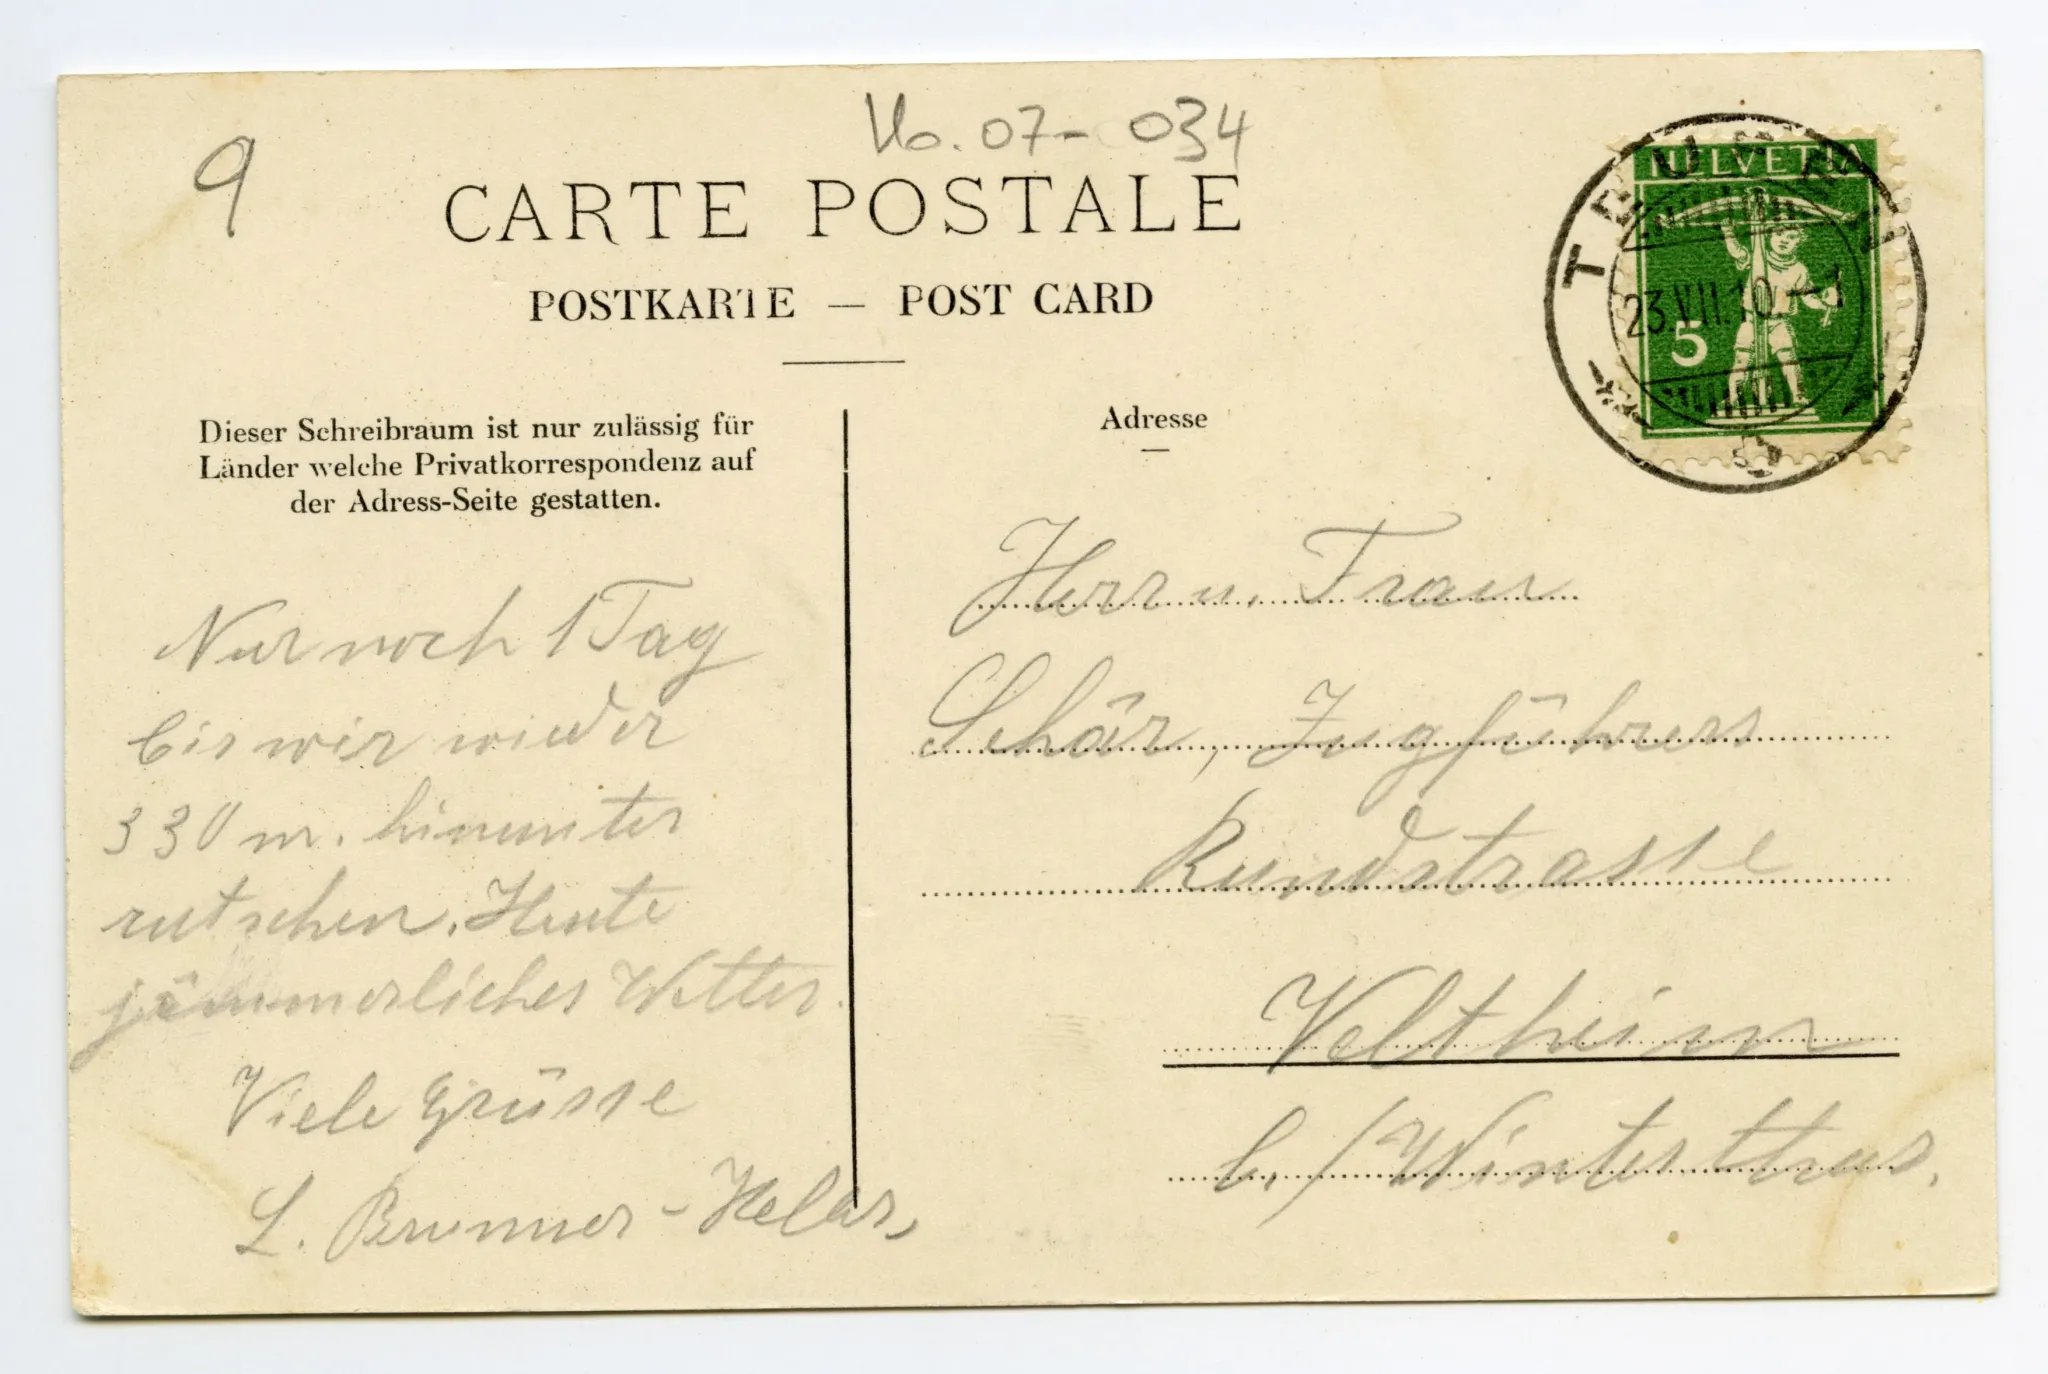 9
Vo. 07-034
CARTE POSTALE
POSTKARTE — POST CARD
HELVETIA
5
TEUFEN
23.VII.10.
Dieser Schreibraum ist nur zulässig für
Länder welche Privatkorrespondenz auf
der Adress-Seite gestatten.
Nur noch 1 Tag
bis wir wieder
330 m. hinunter
rutschen. Heute
jämmerliches Wetter.
Viele Grüsse
L. Brunner-
Adresse
Herr u. Frau
Schär, Zugführers
Rundstrasse
Veltheim
b./Winterthur.